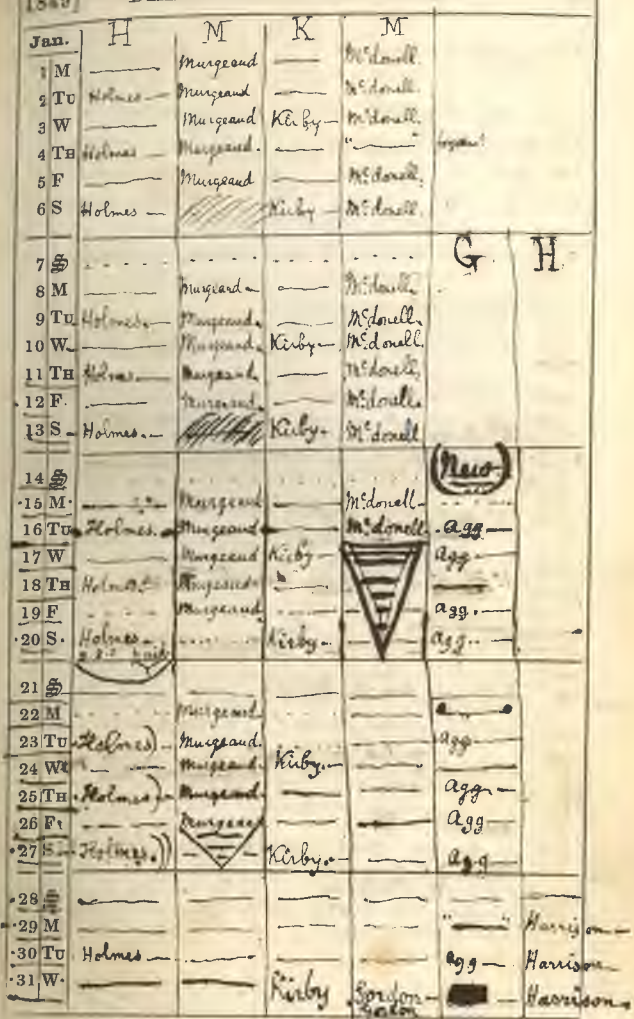 Jan. H M K M
1 M Murgeaud McDonell.
2 Tu Holmes Murgeaud McDonell.
3 W Murgeaud Kirby McDonell.
4 Th Holmes Murgeaud. " "
5 F Murgeaud McDonell.
6 S Holmes Kirby McDonell.
G H
7 S
8 M Murgeaud McDonell.
9 Tu Holmes. Murgeaud. McDonell.
10 W Murgeaud. Kirby McDonell.
11 Th Holmes Murgeaud. McDonell.
12 F. Murgeaud. McDonell.
13 S Holmes. Kirby. McDonell
(New)
14 S
15 M. Murgeaud McDonell
16 Tu Holmes. Murgeaud McDonell. Agg
17 W Murgeaud Kirby Agg
18 Th Holmes Murgeaud
19 F Murgeaud. Agg.
20 S. Holmes Kirby. Agg.
paid
21 S
22 M Murgeaud.
23 Tu Holmes) Murgeaud. Agg
24 W Murgeaud. Kirby.
25 Th Holmes) Murgeaud. Agg
26 F Murgeaud Agg
27 S Holmes.)) Kirby. Agg
28 S
29 M " " Harrison
30 Tu Holmes Agg Harrison
31 W. Kirby Gordon Harrison
Gordon